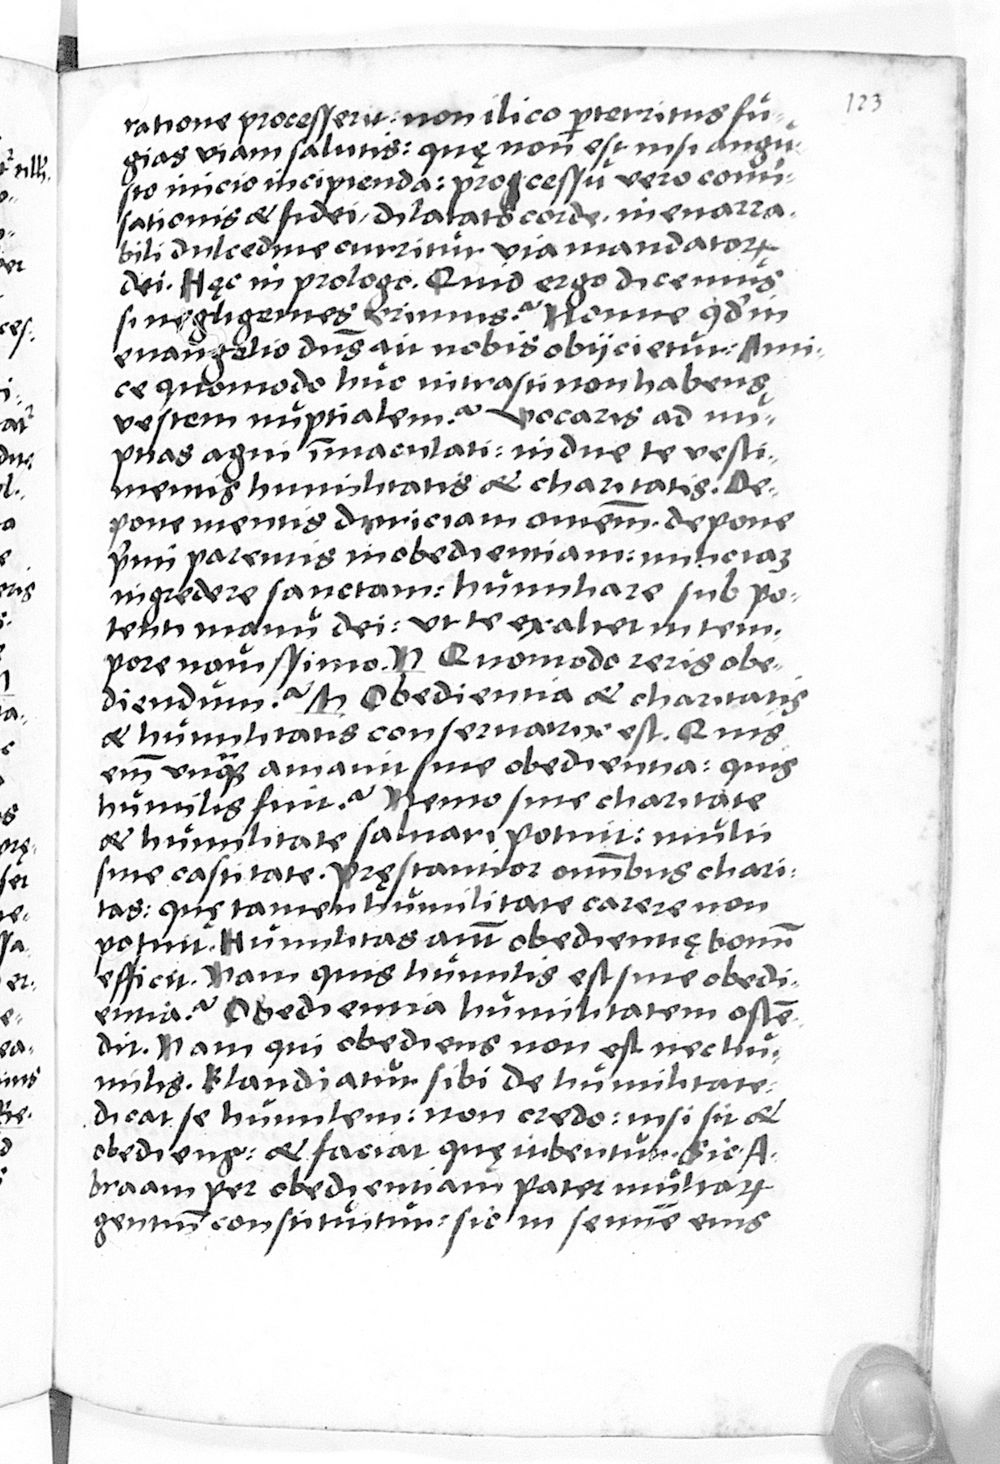 123
ratione processerit: non ilico ꝑterritus fu-
gias viam salutis: quę non est nisi angu-
sto inicio incipienda: processu vero conu̅-
sationis & fidei, dilatato corde, inenarra-
bili dulcedine curritur via mandatoꝝ
dei. Hęc in prologo. Quid ergo dicemus
si negligentes erimus? Nonne qd̛ in
euangelio dn̄s ait nobis obijcietur: Ami-
ce quomodo huc intrasti non habens
vestem nuptialem? Vocaris ad nu-
ptias agni īmaculati: indue te vesti-
mentis humilitatis & charitatis. De-
pone mentis duriciam omnem̄. depone
p̄mi parentis inobedientiam: nunciaꝫ
ingredere sanctam: humiliare sub po-
tenti manu dei: vt te exaltet in tem-
pore nouissimo. N Quomodo reris obe-
diendum? M Obedientia & charitatis
& humilitatis conseruatrix est. Quis
em̄ vnq̄ꝫ amauit sine obedientia: quis
humilis fuit? Nemo sine charitate
& humilitate saluari potuit: multi
sine castitate. Pręstantior omn̄ibus chari-
tas: quę tamen humilitate carere non
potuit. Humilitas aut̄ obedientię bonū
efficit. Nam quis humilis est sine obedi-
entia? Obedientia humilitatem ostē-
dit. Nam qui obediens non est nec hu-
milis. Blandiatur sibi de humilitate:
dicat se humilem: non credo: nisi sit &
obediens: & faciat quę iubentur. Sic A-
braam per obedientiam pater multaꝝ
gentiū constituitur: sic in semine eius